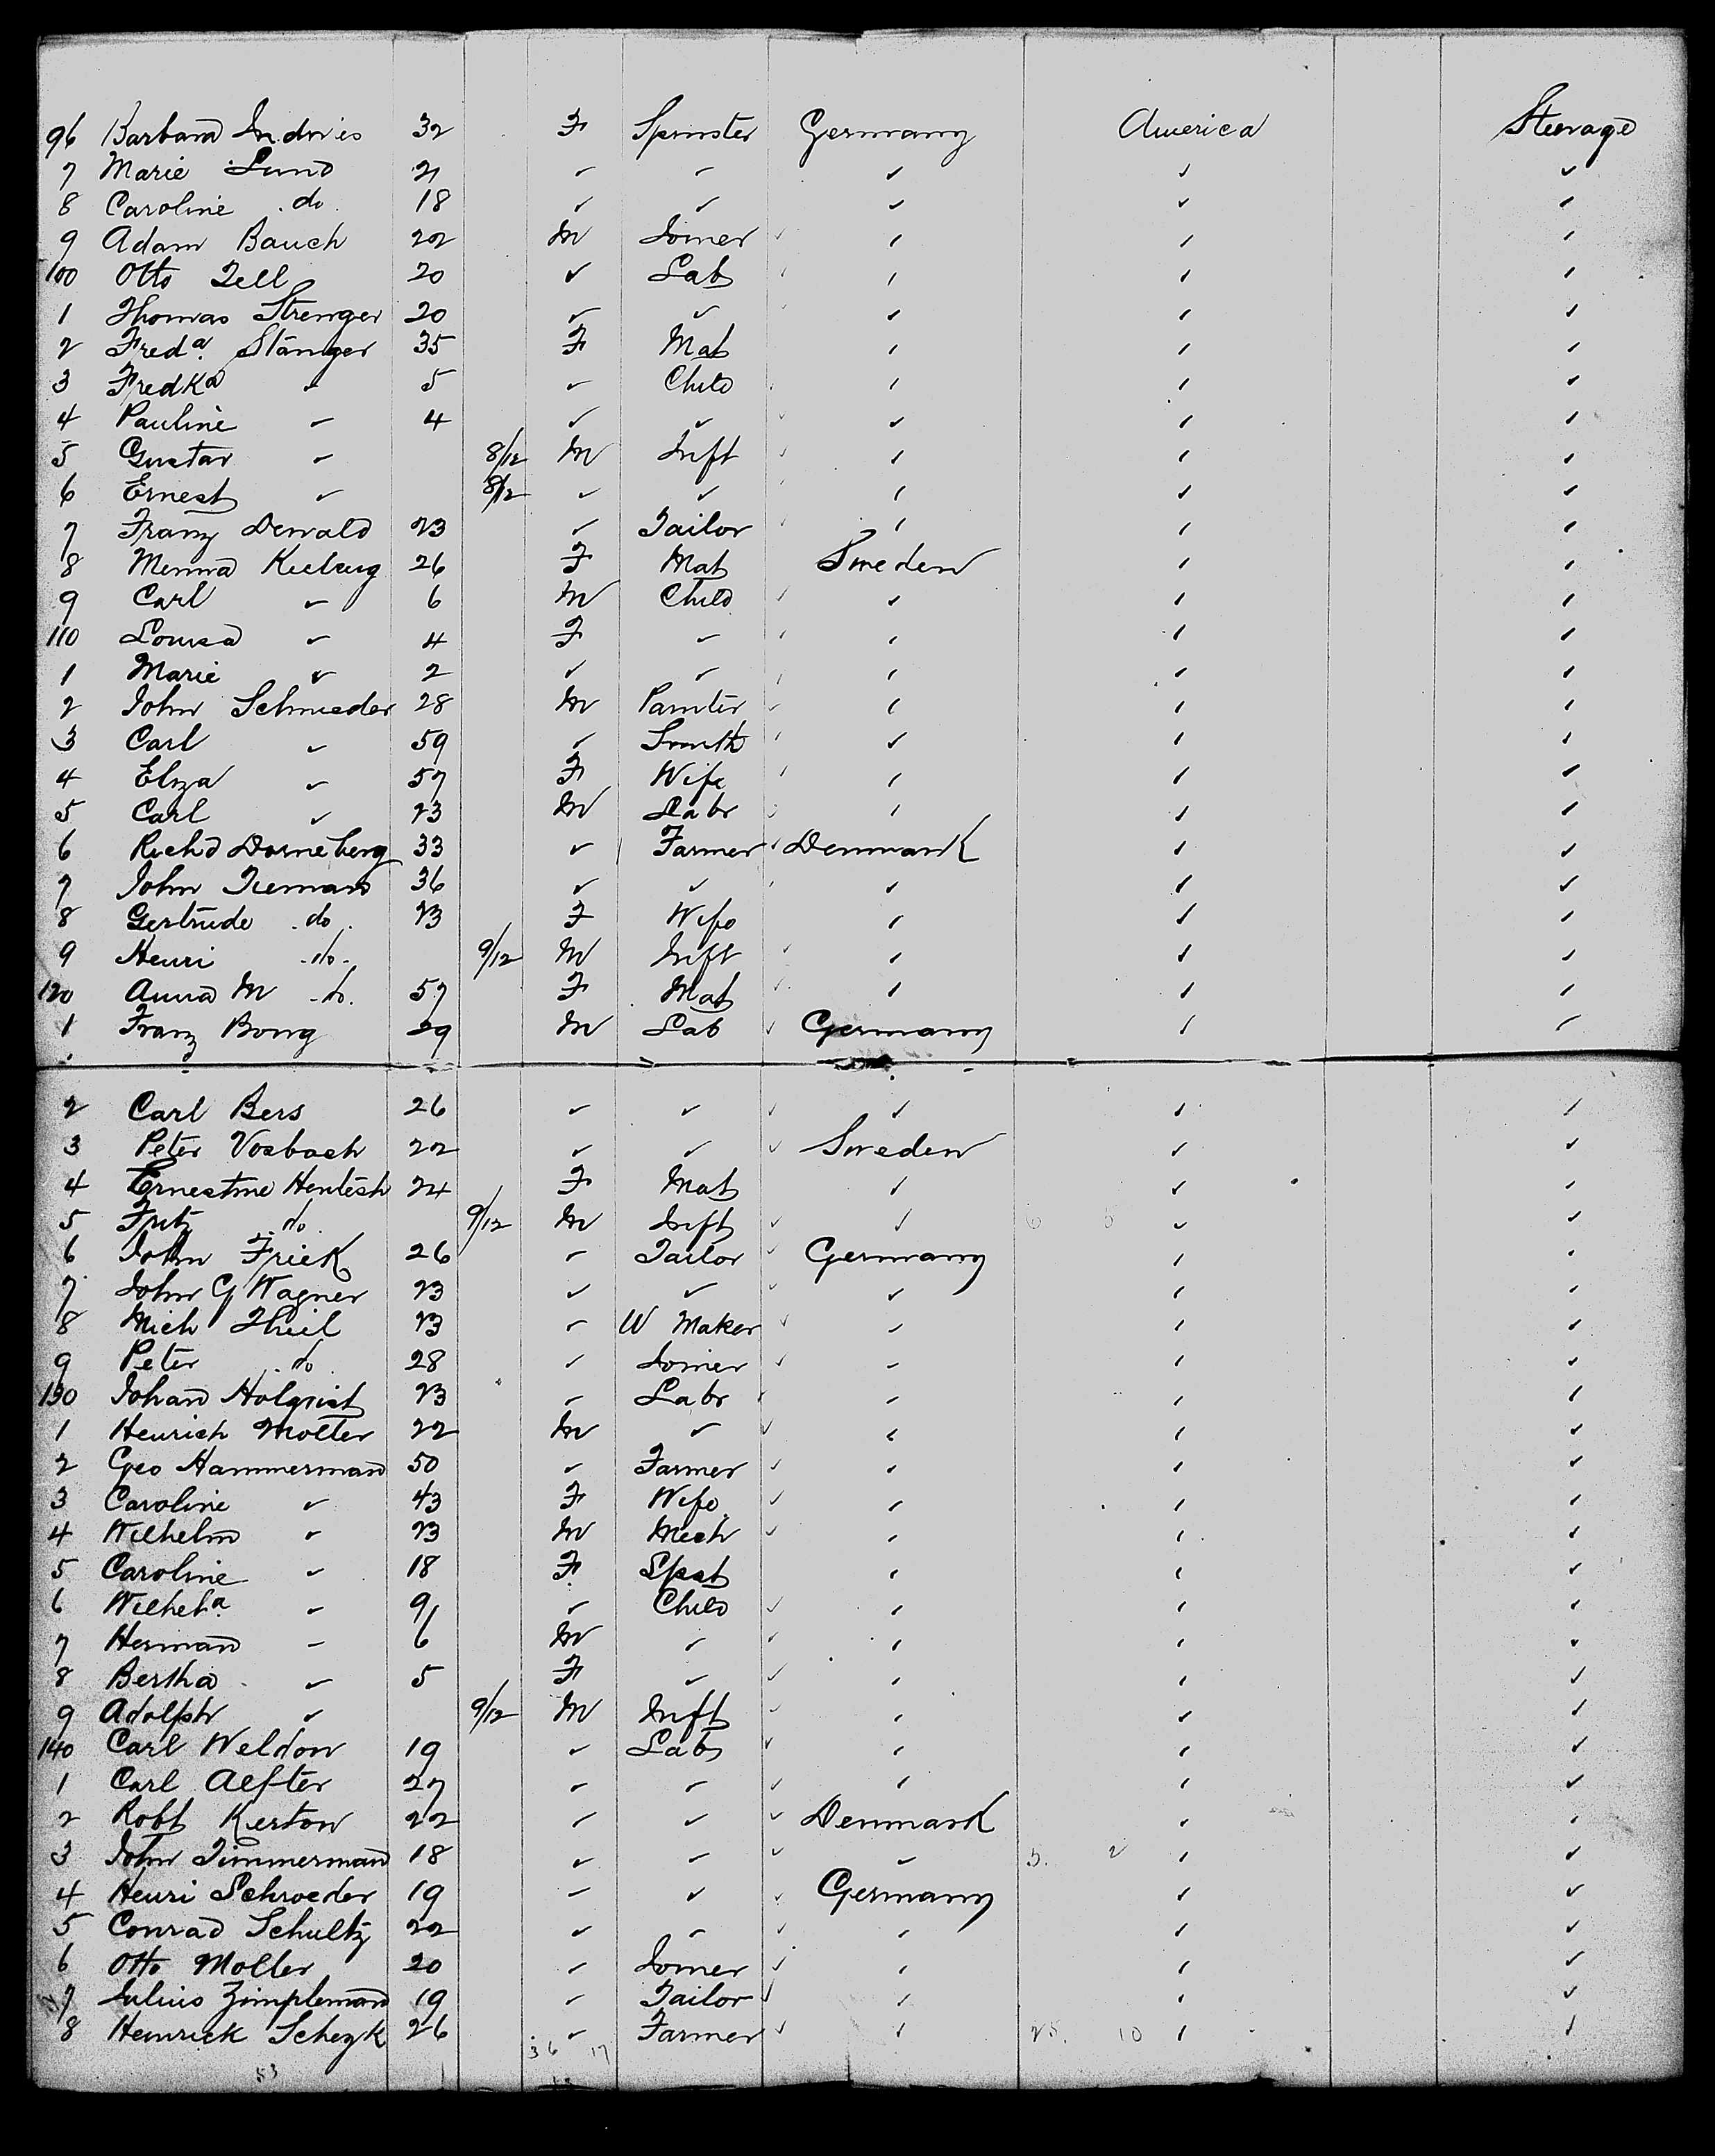 96 Barbara Indries 32 F Spinster Germany America Steerage
7 Marie Lund 21 " " " " "
8 Caroline do 18 " " " " "
9 Adam Bauch 22 M Joiner " " "
100 Otto Zell 20 " Lab " " "
1 Thomas Strenger 20 " " " " "
2 Freda Stanger 35 F Mat " " "
3 Fredka " 5 " Child " " "
4 Pauline " 4 " " " " "
5 Gustav " 8/12 M Inft " " "
6 Ernest " 8/12 " " " " "
7 Franz Dewald 23 " Tailor " " "
8 Menna 26 F Mat Sweden " "
9 Carl " 6 M Child " " "
110 Louisa " 4 F " " " "
1 Marie " 2 " " " " "
2 John Schnieder 28 M Painter " " "
3 Carl " 59 " Smith " " "
4 Eliza " 57 F Wife " " "
5 Carl " 23 M Labr " " "
6 Richd Dorneberg 33 " Farmer Denmark " "
7 John Tiemans 36 " " " " "
8 Gertrude do 23 F Wife " " "
9 Henri do 9/12 M Inft " " "
120 Anna M do 57 F Mat " " "
1 Franz Bong 29 M Lab Germany " "
2 Carl Bers 26 " " " " "
3 Peter Vosbach 22 " " Sweden " "
4 Ernestine Hentesh 24 F Mat " " "
5 Fritz do 9/12 M Inft " " "
6 John Frick 26 " Tailor Germany " "
7 John G Wagner 23 " " " " "
8 Mich Thiel 23 " W Maker " " "
9 Peter do 28 " Joiner " " "
130 Johan Holqvist 23 " Labr " " "
1 Henrich Molter 22 M " " " "
2 Geo Hammerman 50 " Farmer " " "
3 Caroline " 43 F Wife " " "
4 Wilhelm " 23 M Mech " " "
5 Caroline " 18 F Spst " " "
6 Wilhela " 9 " Child " " "
7 Herman " 6 M " " " "
8 Bertha " 5 F " " " "
9 Adolph " 9/12 M Inft " " "
140 Carl Weldon 19 " Lab " " "
1 Carl Aelfter 27 " " " " "
2 Robt Kerton 22 " " Denmark " "
3 John Timmerman 18 " " " " "
4 Henri Schroeder 19 " " Germany " "
5 Conrad Schultz 22 " " " " "
6 Otto Moller 20 " Joiner " " "
7 Julius Zimpleman 19 " Tailor " " "
8 Heinrick Schezk 26 " Farmer " " "